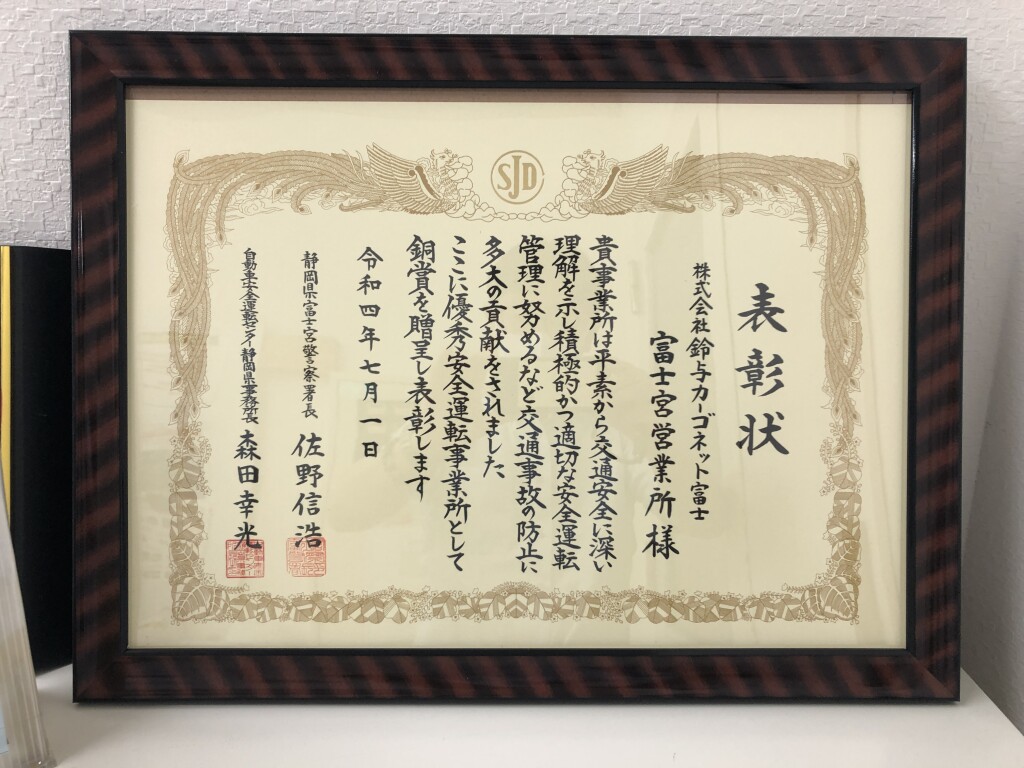 SJD
表彰状
株式会社鈴与カーゴネット富士
富士宮営業所様
貴事業所は平素から交通安全に深い
理解を示し積極的かつ適切な安全運転
管理に努めるなど交通事故の防止に
多大の貢献をされました
ここに優秀安全運転事業所として
銅賞を贈呈し表彰します
令和四年七月一日
静岡県富士宮警察署長 佐野信浩
自動車安全運転センター静岡県事務所長 森田幸光